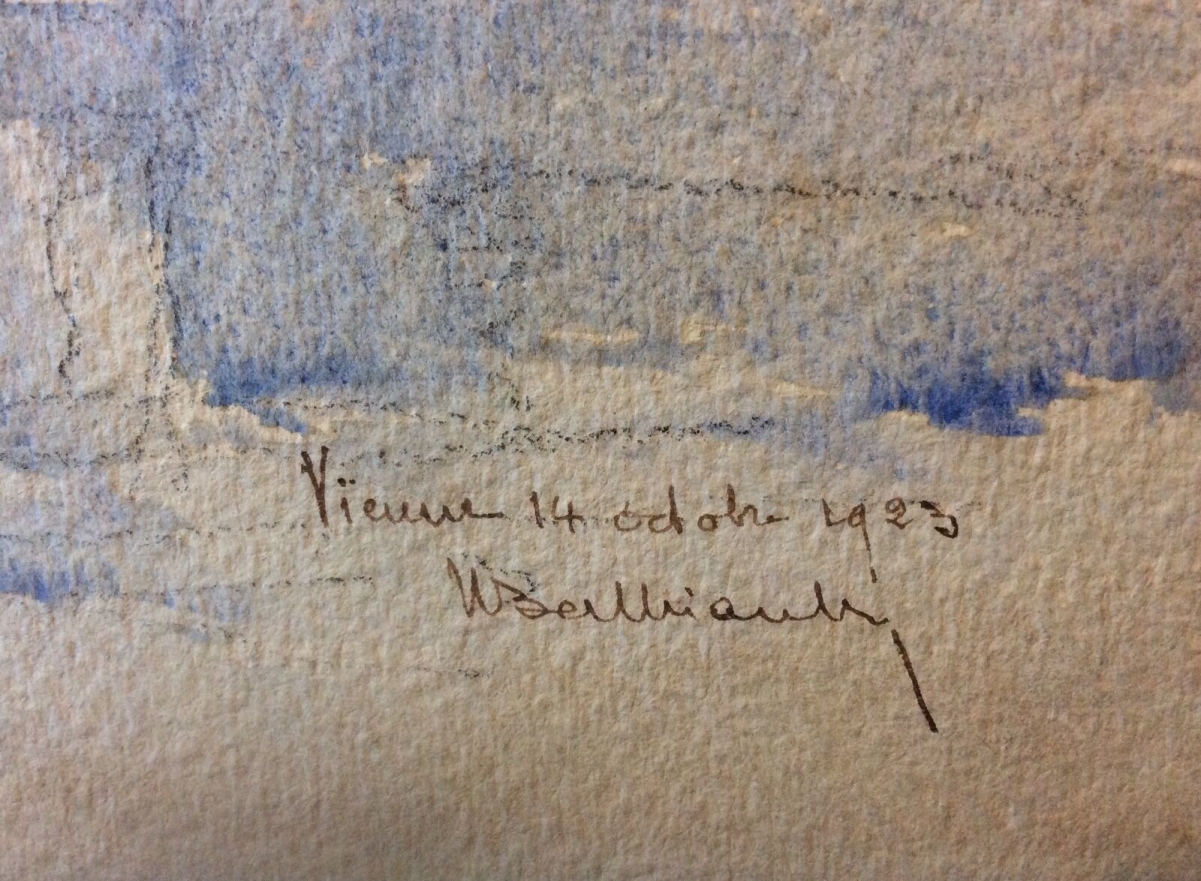 Vienne 14 octobre 1923